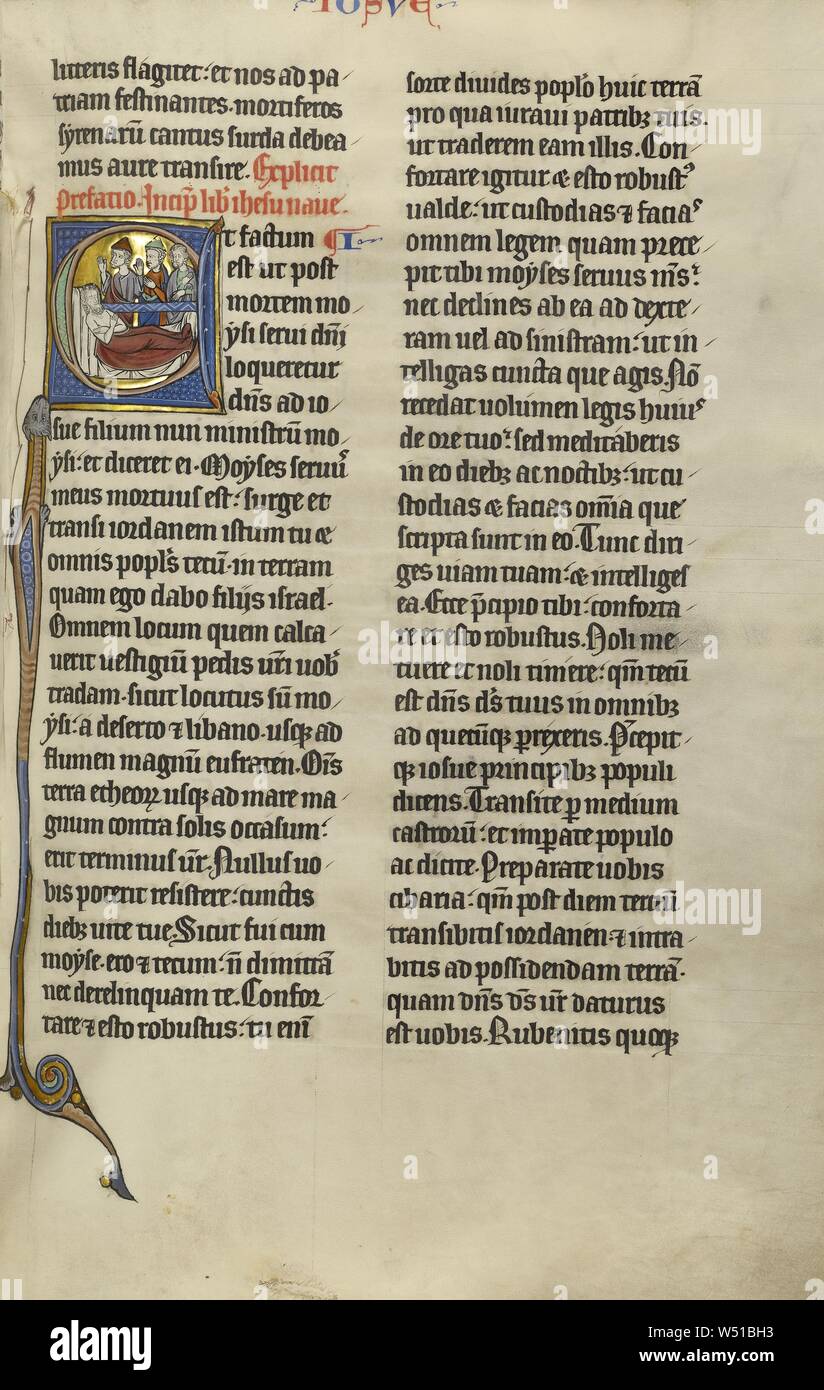 IOSVE
litteris flagitet: et nos ad pa
triam festinantes. mortiferos
syrenarū cantus surda debea
mus aure transire. Explicit
prefatio. Incip̄ lib̄ ihesu naue.
Et factum I
est ut post
mortem mo
ysi serui dn̄i
loqueretur
dn̄s ad io
sue filium nun ministrū mo
ysi: et diceret ei. Moyses seruus
meus mortuus est: surge et
transi iordanem istum tu &
omnis popl̄s tecū. in terram
quam ego dabo filijs israel.
Omnem locum quem calca
uerit uestigiū pedis ur̄i uob̄
tradam. sicut locutus sū mo
ysi: a deserto ⁊ libano. usqꝫ ad
flumen magnū eufraten. Oīs
terra etheoꝝ usqꝫ ad mare ma
gnum contra solis occasum:
erit terminus ur̄. Nullus uo
bis poterit resistere: cunctis
diebꝫ uite tue. Sicut fui cum
moyse. ero ⁊ tecum: n̄ dimittā
nec derelinquam te. Confor
tare ⁊ esto robustus: tu enī
sorte diuides popl̄o huic terrā
pro qua iuraui patribꝫ tuis.
ut traderem eam illis. Con
fortare igitur & esto robustꝰ
ualde: ut custodias ⁊ faciaˢ
omnem legem quam prece
pit tibi moyses seruus m̄s:
nec declines ab ea ad dexte
ram uel ad sinistram: ut in
telligas cuncta que agis. Nō
recedat uolumen legis huiuˢ
de ore tuo: sed meditaberis
in eo diebꝫ ac noctibꝫ: ut cu
stodias & facias om̄ia que
scripta sunt in eo. Tunc diri
ges uiam tuam: & intelliges
ea. Ecce p̄cipio tibi: conforta
re et esto robustus. Noli me
tuere et noli timere: qm̄ tecū
est dn̄s ds̄ tuus in omnibꝫ
ad quecūqꝫ ꝑrexeris. P̄cepit
qꝫ iosue principibꝫ populi
dicens. Transite ꝑ medium
castrorū: et imꝑate populo
ac dicite. Preparate uobis
cibaria: qm̄ post diem tertiū
transibitis iordanen ⁊ intra
bitis ad possidendam terrā.
quam dn̄s ds̄ ur̄ daturus
est uobis. Rubenitis quoqꝫ
alamy
a
alamy stock photo
W51BH3
www.alamy.com